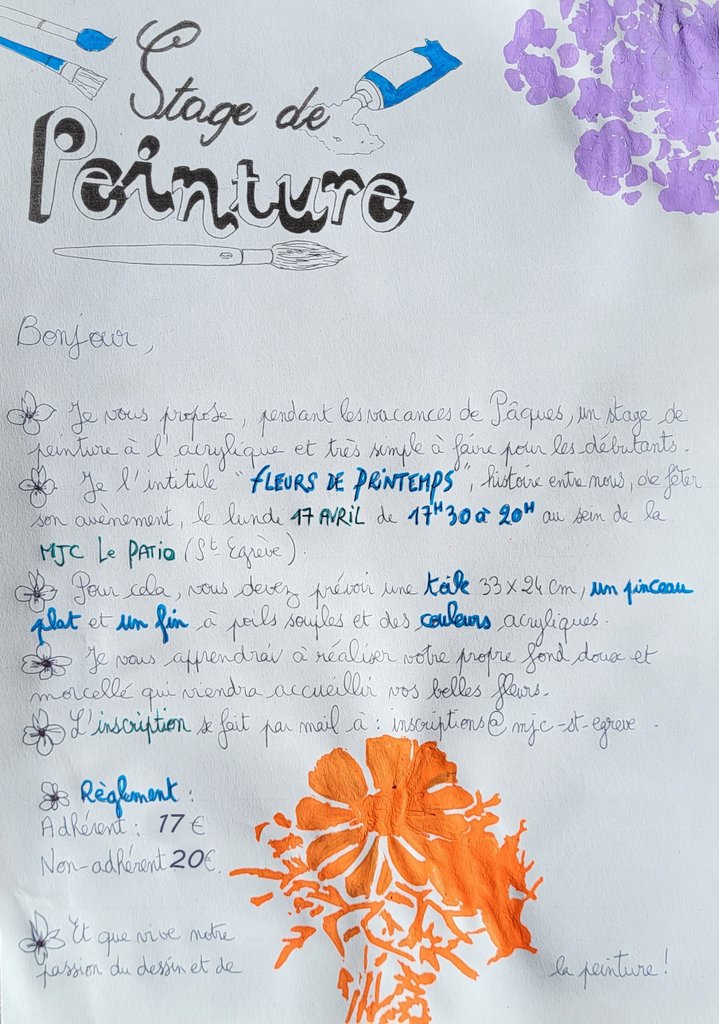 Stage de
Peinture
Bonjour,
Je vous propose, pendant les vacances de Pâques, un stage de
peinture à l'acrylique et très simple à faire pour les débutants.
Je l'intitule "FLEURS DE PRINTEMPS", histoire entre nous, de fêter
son avènement, le lundi 17 AVRIL de 17H30 à 20H au sein de la
MJC Le PATIO (St Egrève).
Pour cela, vous devez prévoir une toile 33 x 24 cm, un pinceau
plat et un fin à poils souples et des couleurs acryliques.
Je vous apprendrai à réaliser votre propre fond doux et
morcellé qui viendra accueillir vos belles fleurs.
L'inscription se fait par mail à : inscriptions@mjc-st-egreve.
Règlement :
Adhérent : 17 €
Non-adhérent 20€.
Et que vive notre
passion du dessin et de la peinture !